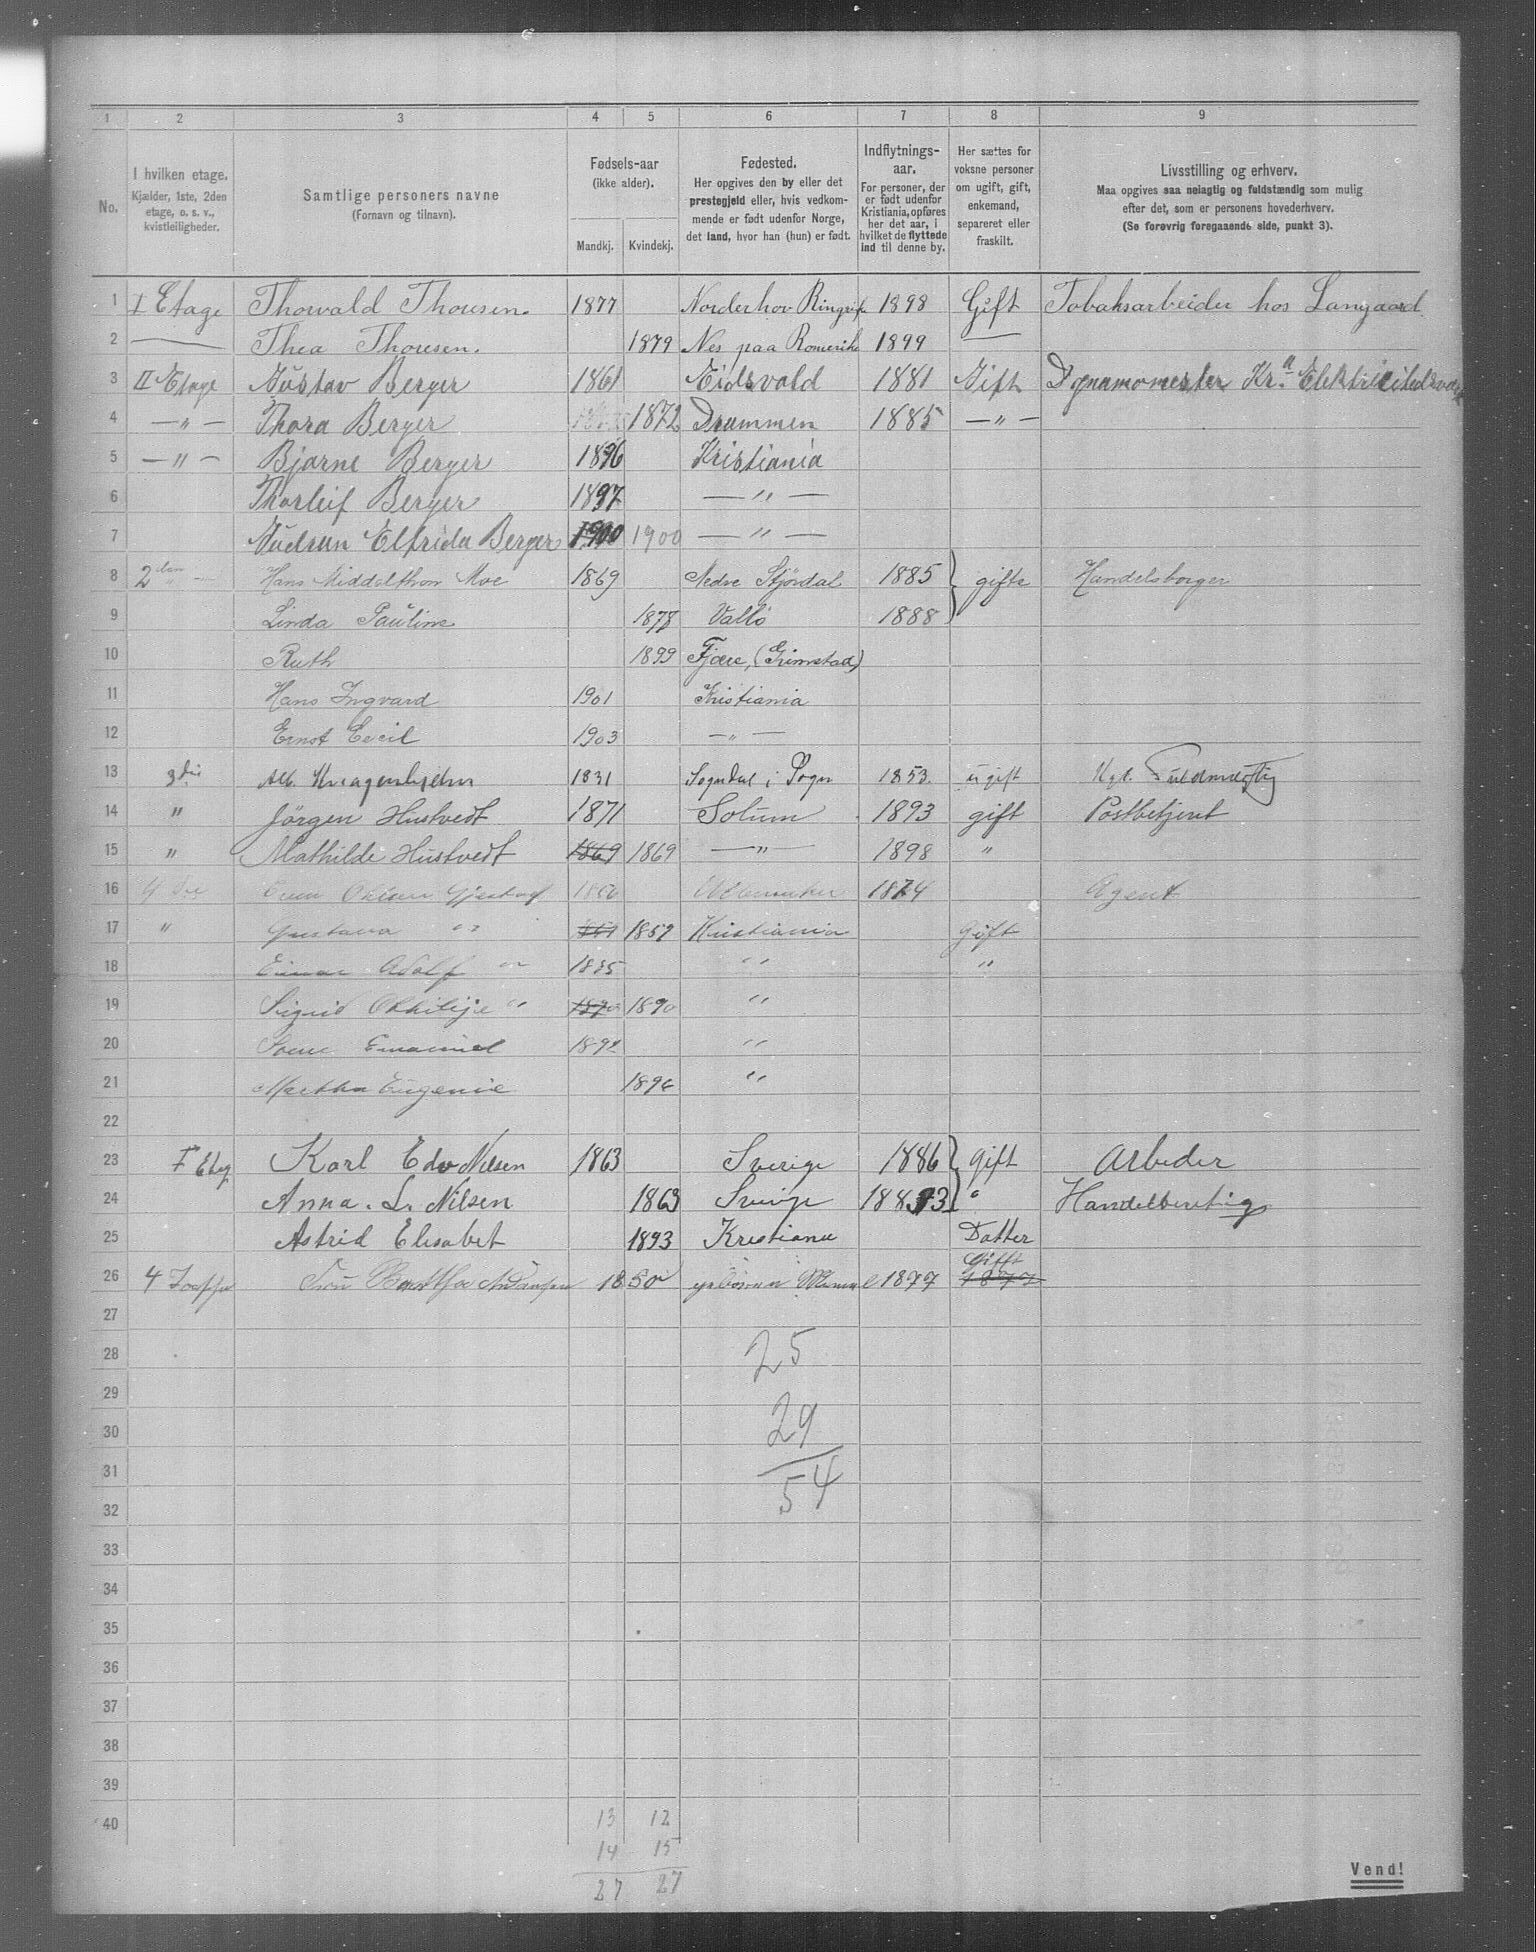 1 2 3 4 5 6 7 8 9
No.
I hvilken etage.
Kjælder, 1ste, 2den
etage, o. s. v.,
kvistleiligheder.
Samtlige personers navne
(Fornavn og tilnavn).
Fødsels-aar
(ikke alder).
Mandkj. Kvindekj.
Fødested.
Her opgives den by eller det
prestegjeld eller, hvis vedkom-
mende er født udenfor Norge,
det land, hvor han (hun) er født.
Indflytnings-
aar.
For personer, der
er født udenfor
Kristiania, opføres
her det aar, i
hvilket de flyttede
ind til denne by.
Her sættes for
voksne personer
om ugift, gift,
enkemand,
separeret eller
fraskilt.
Livsstilling og erhverv.
Maa opgives saa nøiagtig og fuldstændig som mulig
efter det, som er personens hovederhverv.
(Se forøvrig foregaaende side, punkt 3).
1 I Etage Thorvald Thoresen. 1877 Norderhov 1898 Gift Tobaksarbeider hos Langaard
2 Thea Thoresen. 1879 Nes paa Romerike 1899
3 II Etage Gustav Berger 1861 Eidsvold 1881 Gift Dynamomester Kr.a
4 — " — Thora Berger 1872 Drammen 1885 — " —
5 — " — Bjarne Berger 1896 Kristiania
6 Thorleif Berger 1897 — " —
7 Gudrun Elfrida Berger 1900 1900 — " —
8 2den Hans Middelthon Moe 1869 Nedre Stjørdal 1885 gifte Handelsborger
9 Linda Pauline 1878 Vallö 1888
10 Ruth 1899 Fjære, (Grimstad)
11 Hans Ingvard 1901 Kristiania
12 Ernst Cecil 1903 — " —
13 3die Alb. 1831 Sogndal i Sogn 1853 ugift Kgl. Fuldmægtig
14 " Jörgen Hustvedt 1871 Solum 1893 gift Postbetjent
15 " Mathilde Hustvedt 1869 1869 — " — 1898 "
16 4de 1874 Agent
17 " Gustava " 1859 Kristiania Gift
18 Einar Adolf " " "
19 Sigrid " 1890 1890 "
20 Emanuel 1892 "
21 Martha Eugenie 1896 "
22
23 I Etg Karl Edv Nilsen 1863 Sverige 1886 gift Arbeder
24 Anna. L. Nilsen 1863 Sverige 1883 "
25 Astrid Elisabet 1893 Kristiania Datter
26 4 1850 1877 Gifft 1877
27
28 25
29
30 29
31
32 54
33
34
35
36
37
38
39
40 13 12
14 15
27 27
Vend!